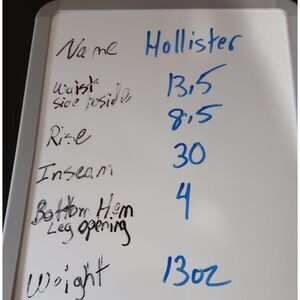 Name Hollister
Waist 13,5
Side to side
Rise 8,5
Inseam 30
Bottom Hem 4
Leg opening
Weight 13oz